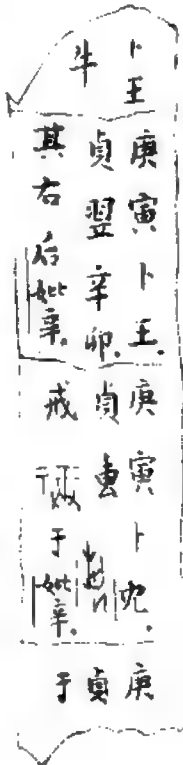 卜王
牛
庚寅卜王.
貞翌辛卯.
其右后妣辛.
庚寅卜
貞叀
戒于妣辛.
庚
貞
于